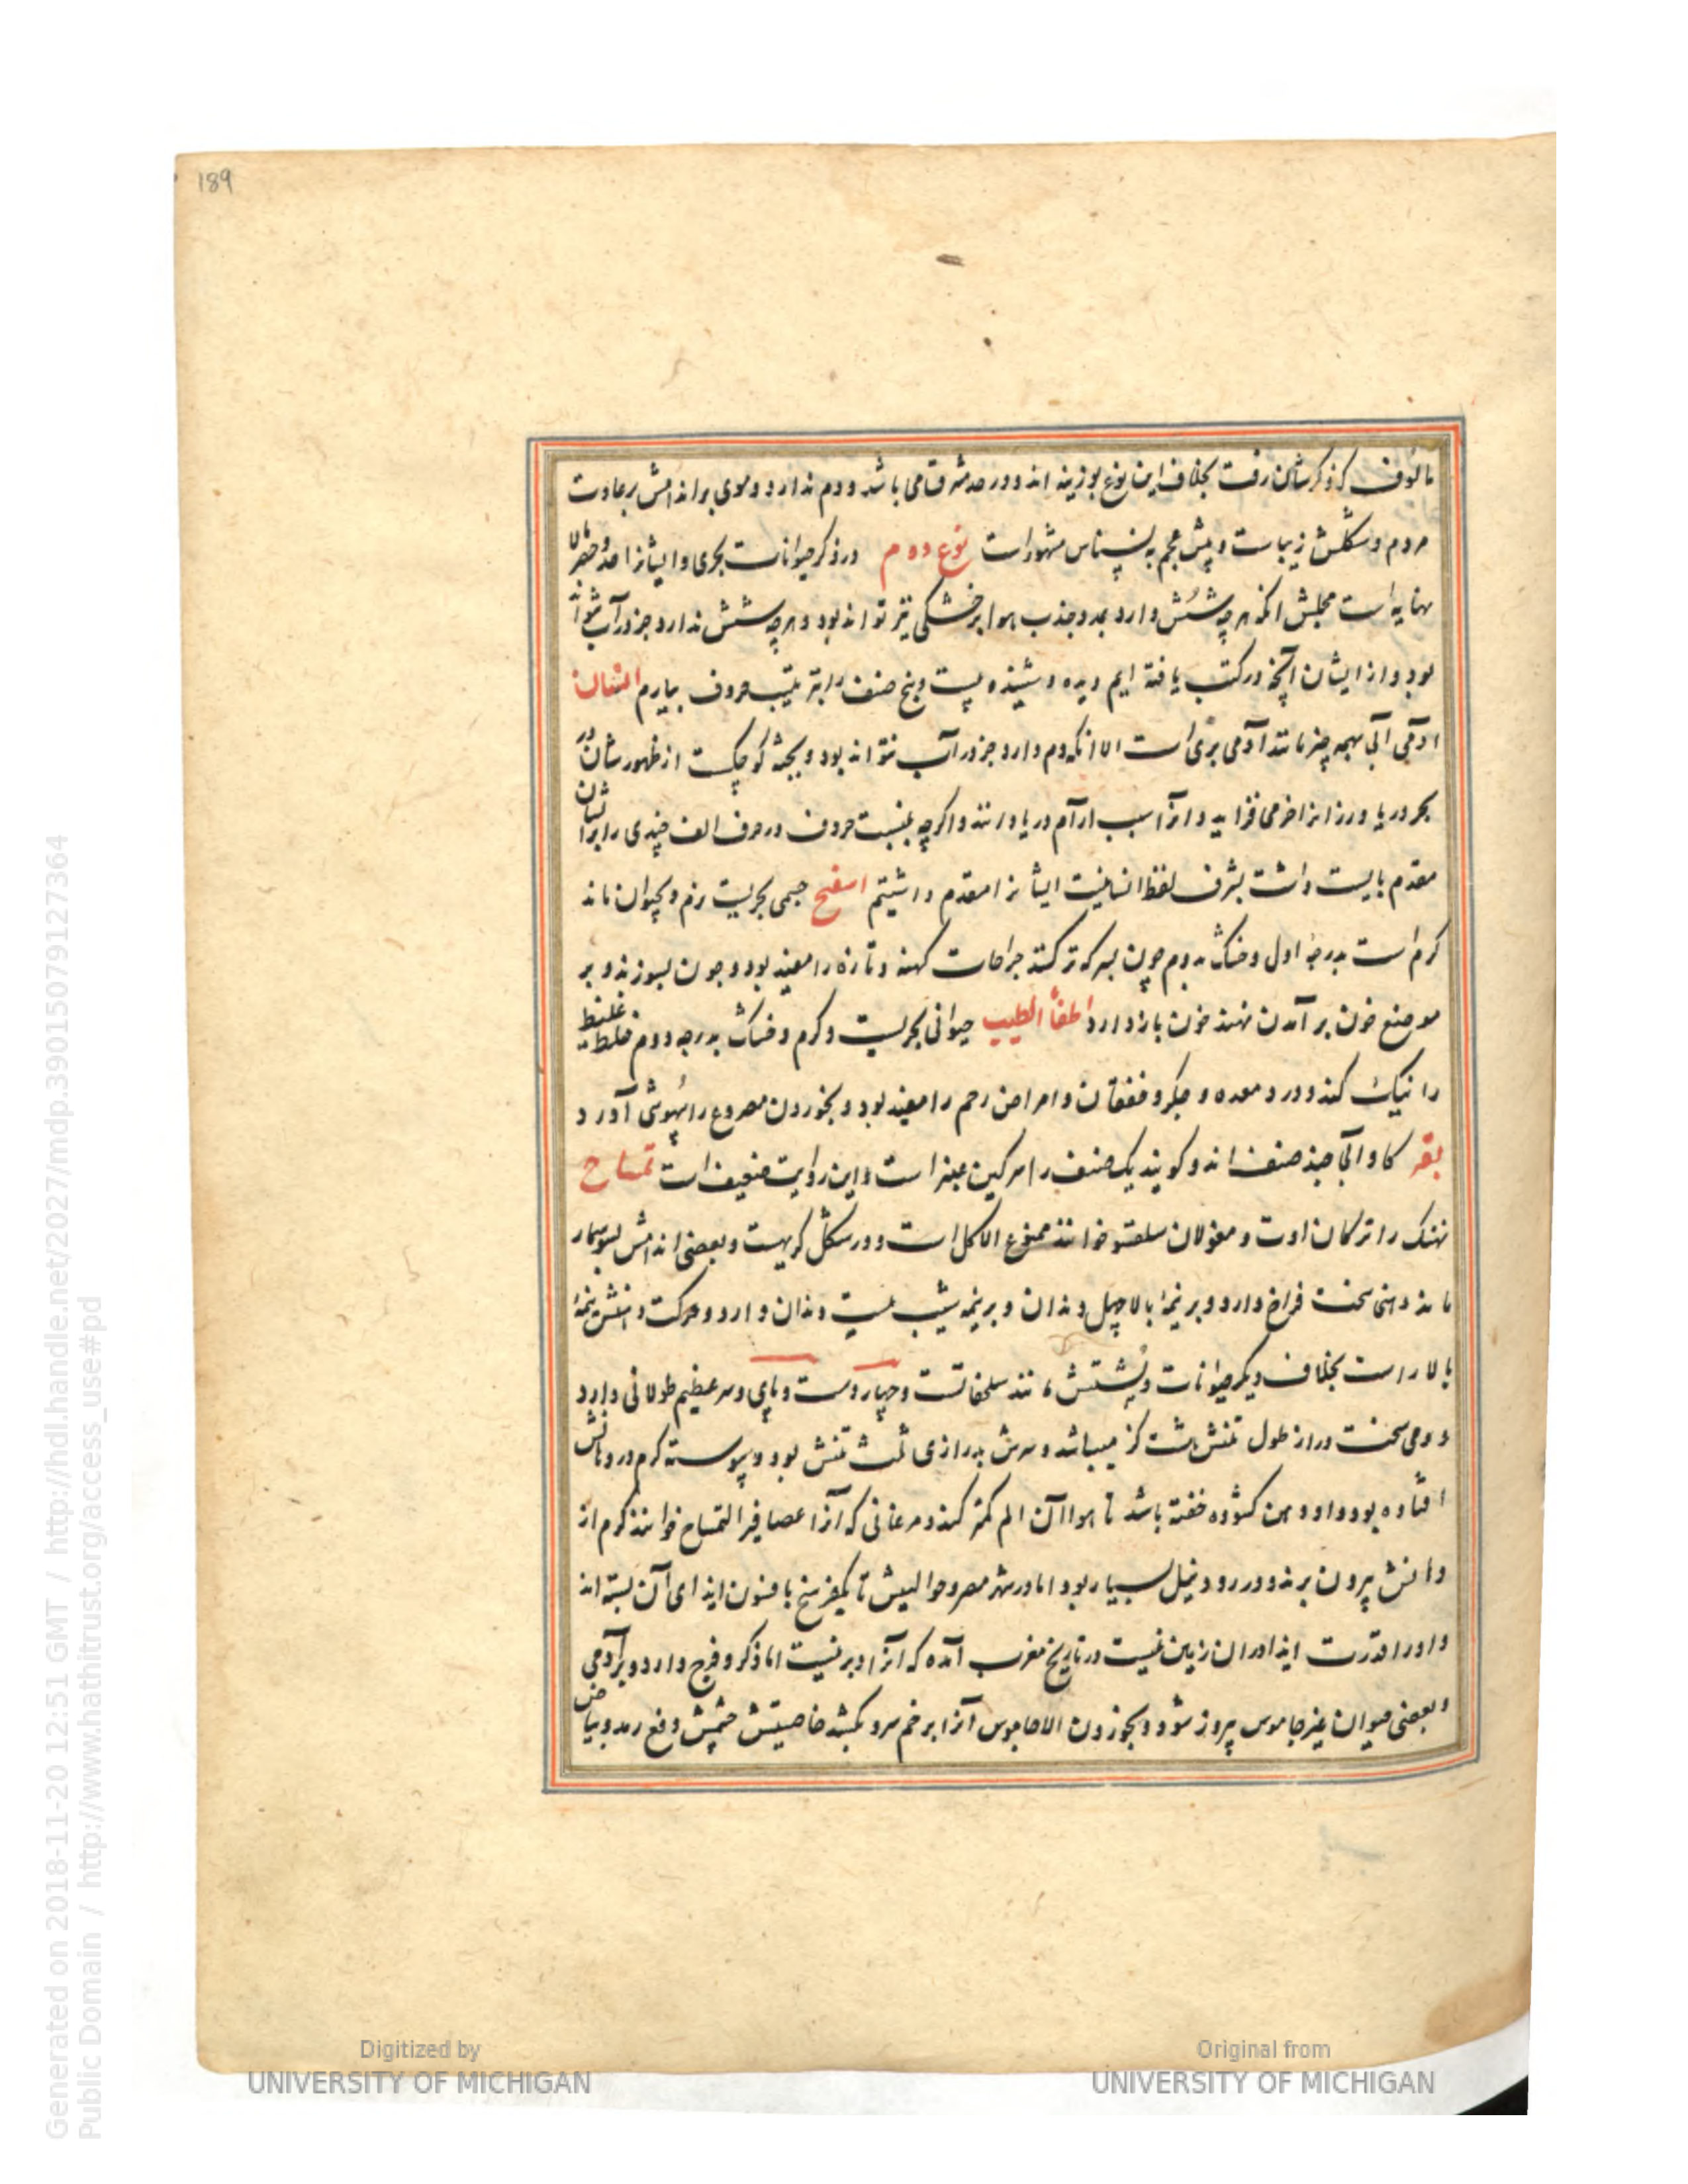 189
مألوف که ذکرشان رفت بخلاف این نوع بوزینه اند و در حد مشرق می باشد و دم ندارد و موی براندامش برعادت
مردم و شکلش زیباست و پیش عجم به نسناس مشهور است نوع دوم در ذکر حیوانات بحری و ایشانرا
نهایه است مجلش آنکه هرچه شش دارد بمدد جذب هوا بر خشکی نیز تواند بود و هرچه شش ندارد جز در آب
بود و از ایشان آنچه در کتب یافته ایم و دیده و شنیده بیست و پنج صنف را بترتیب حروف بیاریم
آدمی آبی بهمه چیز مانند آدمی بری است الا آنکه دم دارد و جز در آب نتواند بود و بجثه کوچکست از ظهورشان در
بحر دریا و رزانرا خرمی فزاید و آنرا سبب آرام دریا دانند و اگرچه بنسبت حروف در حرف الف چندی را بر ایشان
مقدم بایست داشت بشرف لفظ انسانیت ایشانرا مقدم داشتیم اسفنج جسمی بحریست نرم و بحیوان ماند
گرم است بدرجه اول و خشک بدوم چون بسرکه تر کنند جراحات کهنه و تازه را مفید بود و چون بسوزند و بر
موضع خون بر آمدن نهند خون بازدارد اظفار الطیب حیوانی بحریست و گرم و خشک بدرجه دوم غلیظ
را نیک کند و درد معده و جگر و خفقان و امراض رحم را مفید بود و بخوردن مصروع را بهوش آورد
بقر گاو آبی چند صنف اند و گویند یک صنف را سرگین عنبر است و این روایت ضعیف است تمساح
نهنگ را ترکمان اوت و مغولان سلقسو خوانند ممنوع الاکل است و در شکل کریهست و بعضی اندامش بسوسمار
ماند دهنی سخت فراخ دارد و بر نیمه بالا چهل دندان و بر نیمه شیب بیست دندان دارد و حرکت دهنش نیمه
بالا راست بخلاف دیگر حیوانات و پشتش مانند سلحفاتست و چهار دست و پای و سر عظیم طولانی دارد
و دمی سخت دراز طول تنش هشت گز میباشد و سرش بدرازی ثلث تنش بود و پیوسته کرم در دهانش
افتاده بود و او دهن گشوده خفته باشد تا هوا آن الم کمتر کند و مرغانی که آنرا عصافیر التمساح خوانند کرم از
دهانش بیرون برند و در رود نیل بسیار بود اما در شهر مصر و حوالیش تا یکفرسنخ بافسون ایذای آن بسته اند
و او را قدرت ایذا در آن زمین نیست در تاریخ مغرب آمده که آنرا دبر نیست اما ذکر و فرج دارد و بر آدمی
و بعضی حیوان غیر جاموس پیروز شود و بخوردن الا جاموس آنرا بر خم سرو بکشد خاصیتش چشمش دفع رمد و بیاض
Generated on 2018-11-20 12:51 GMT / http://hdl.handle.net/2027/mdp.39015079127364
Public Domain / http://www.hathitrust.org/access_use#pd
Digitized by
UNIVERSITY OF MICHIGAN
Original from
UNIVERSITY OF MICHIGAN